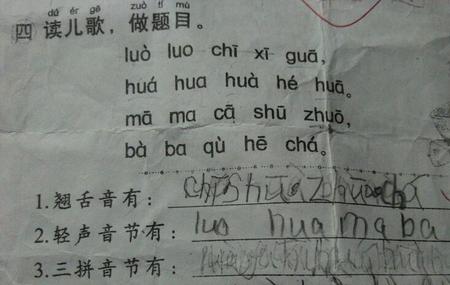 dú ér gē zuò tí mù
四 读儿歌，做题目。
luò luo chī xī guā,
huá hua huà hé huā。
mā ma cā shū zhuō,
bà ba qù hē chá。
1.翘舌音有： chī shū zhuō chá
2.轻声音节有： luo hua ma ba
3.三拼音节有：